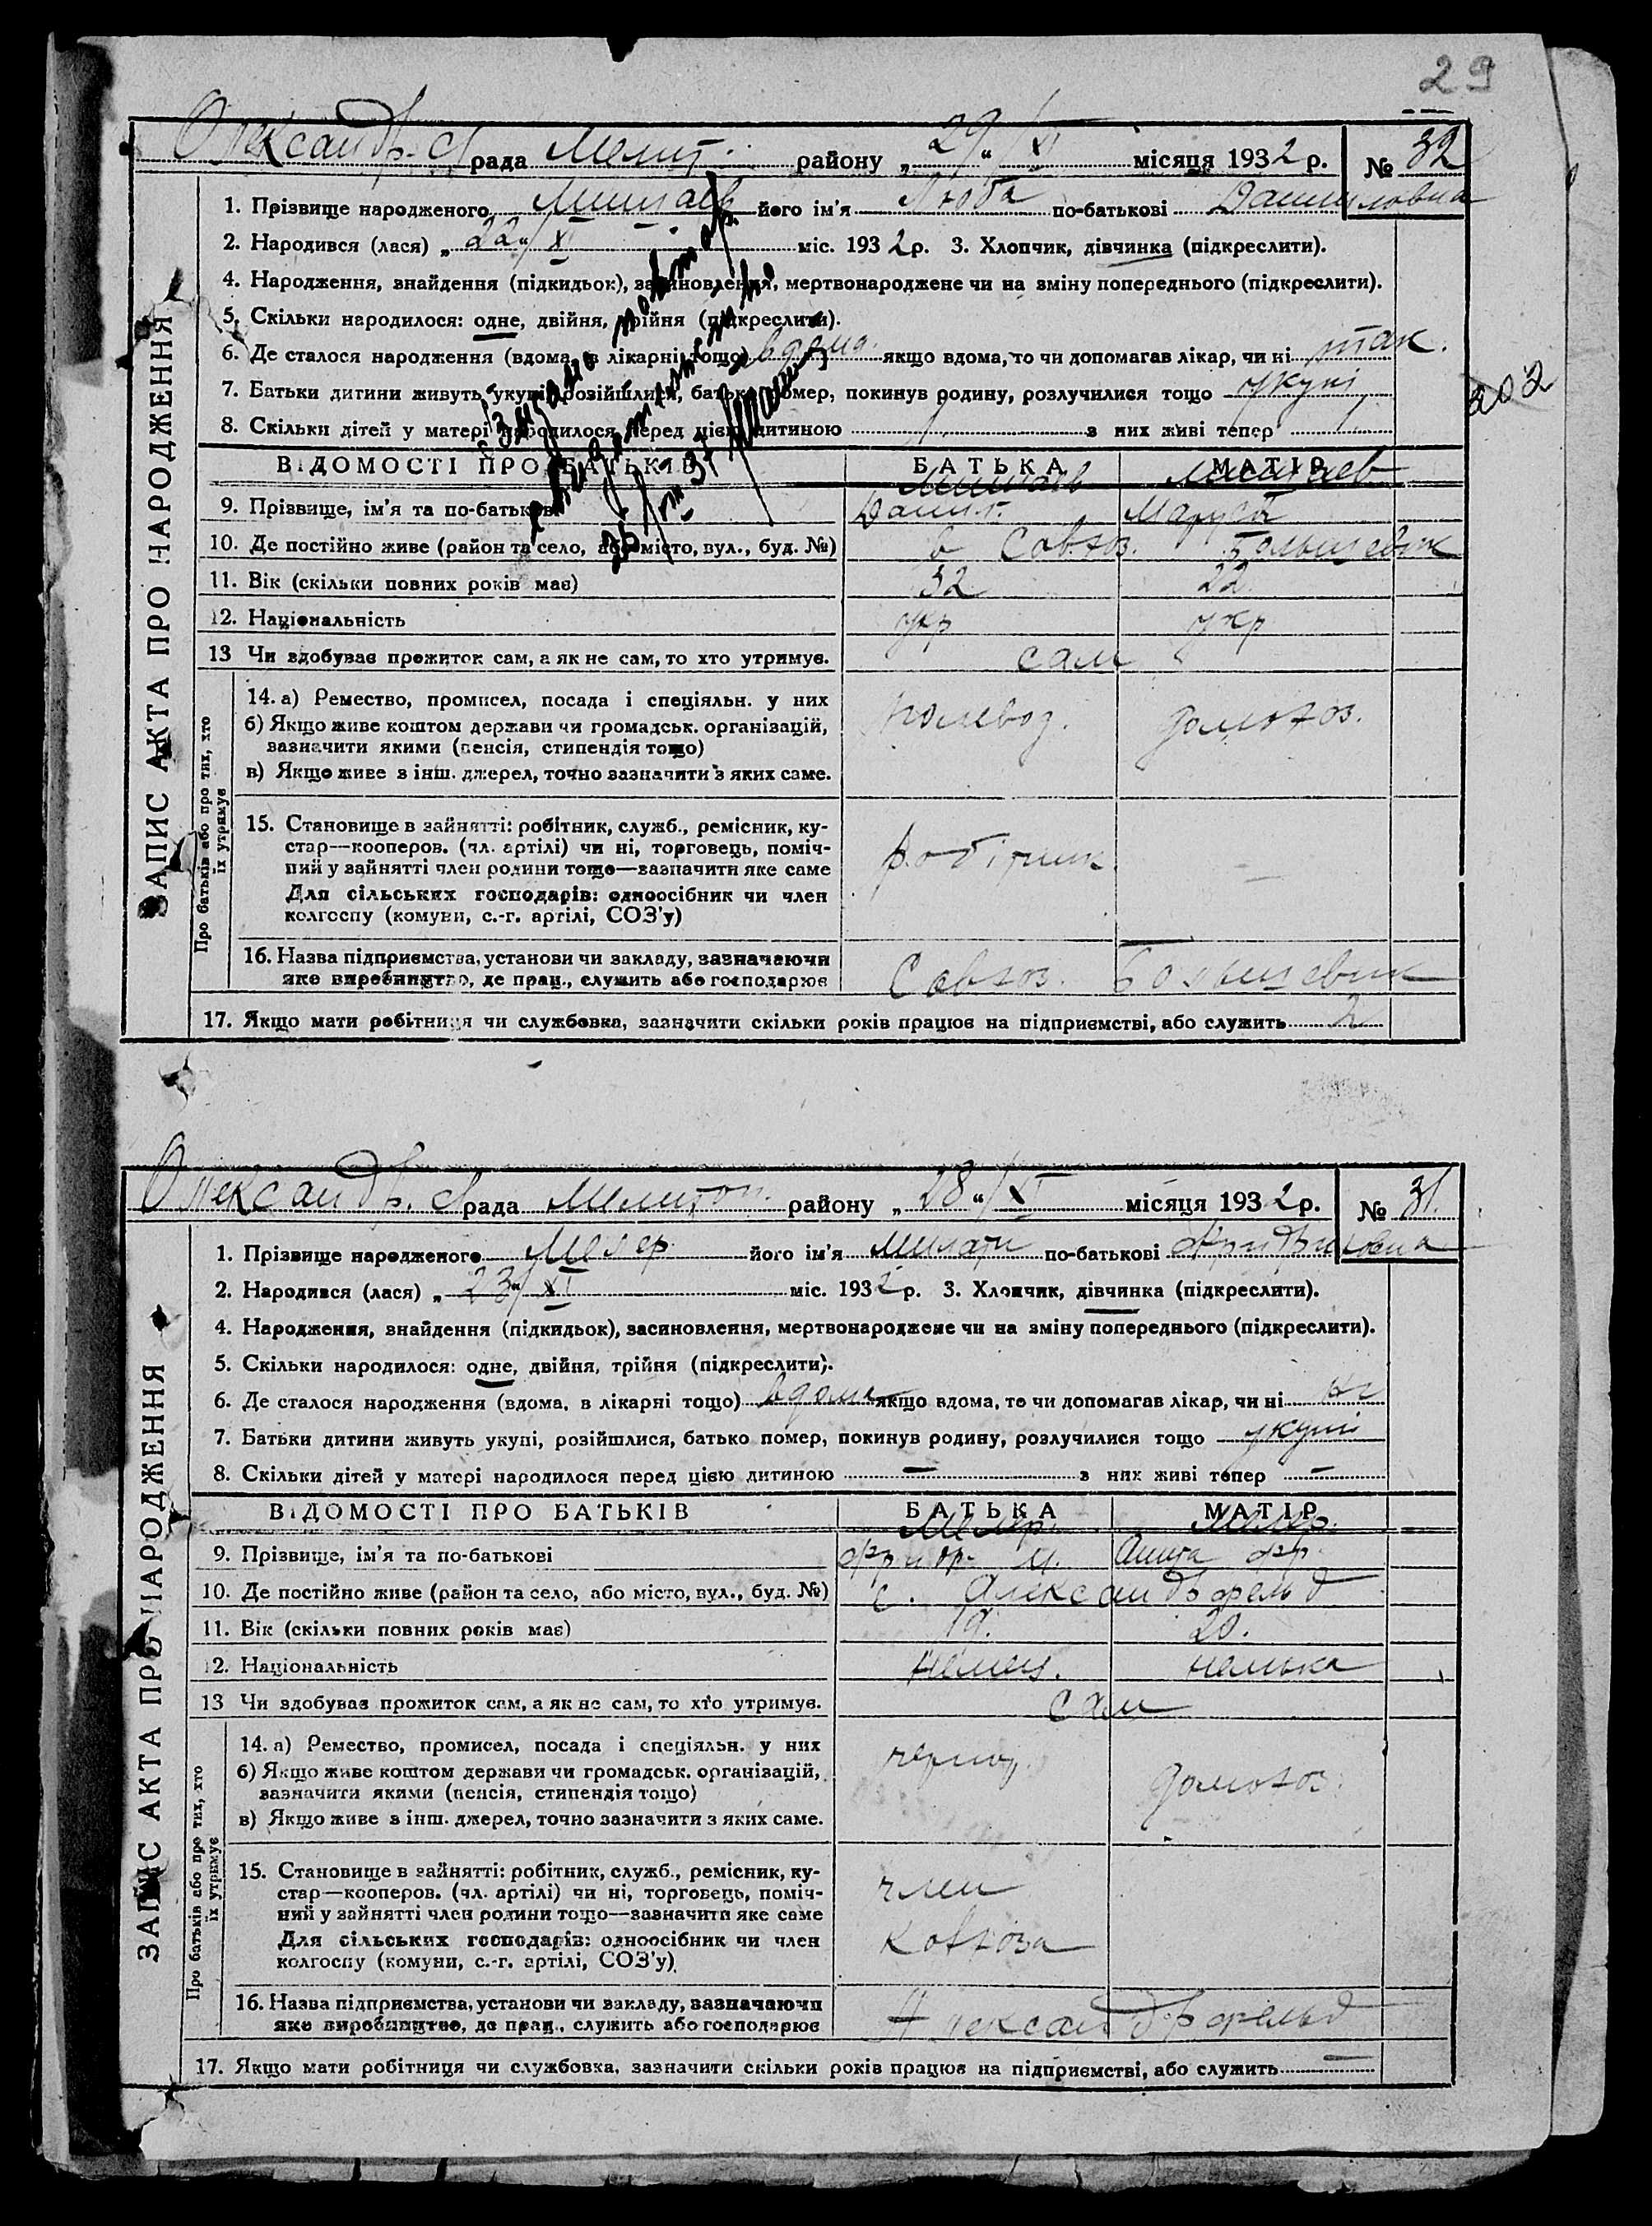 29
Олександр. с/рада Меліт. району „29“/XI місяця 1932 р. № 32
1. Прізвище народженого його ім'я Люба по-батькові Даниловна
2. Народився (лася) „22“/XI міс. 1932 р. 3. Хлопчик, дівчинка (підкреслити).
4. Народження, знайдення (підкидьок), засиновлення, мертвонароджене чи на зміну попереднього (підкреслити).
5. Скільки народилося: одне, двійня, трійня (підкреслити).
6. Де сталося народження (вдома, в лікарні тощо) вдома. якщо вдома, то чи допомагав лікар, чи ні так.
7. Батьки дитини живуть укупі, розійшлися, батько помер, покинув родину, розлучилися тощо укупі
202
8. Скільки дітей у матері народилося перед цією дитиною 1 з них живі тепер 1
ВІДОМОСТІ ПРО БАТЬКІВ БАТЬКА МАТІР
9. Прізвище, ім'я та по-батькові Данил. Маруся
10. Де постійно живе (район та село, або місто, вул., буд. №) в Совхоз. Большевик
11. Вік (скільки повних років має) 32 22
12. Національність укр укр
13 Чи здобуває прожиток сам, а як не сам, то хто утримує. сам
Про батьків або про тих, хто їх утримує
14. а) Ремество, промисел, посада і спеціяльн. у них полевод. домохоз.
б) Якщо живе коштом держави чи громадськ. організацій,
зазначити якими (пенсія, стипендія тощо)
в) Якщо живе з інш. джерел, точно зазначити з яких саме.
15. Становище в зайнятті: робітник, служб., ремісник, ку-
стар—кооперов. (чл. артілі) чи ні, торговець, поміч- робітник.
ний у зайнятті член родини тощо—зазначити яке саме
Для сільських господарів: одноосібник чи член
колгоспу (комуни, с.-г. артілі, СОЗ'у)
16. Назва підприємства, установи чи закладу, зазначаючи
яке виробництво, де прац., служить або господарює Совхоз. Большевик
17. Якщо мати робітниця чи службовка, зазначити скільки років працює на підприємстві, або служить 2
ЗАПИС АКТА ПРО НАРОДЖЕННЯ
Олександр. с/рада Мелитоп. району „28“/XI місяця 1932 р. № 31.
1. Прізвище народженого Мелер його ім'я по-батькові
2. Народився (лася) „23“/XI міс. 1932 р. 3. Хлопчик, дівчинка (підкреслити).
4. Народження, знайдення (підкидьок), засиновлення, мертвонароджене чи на зміну попереднього (підкреслити).
5. Скільки народилося: одне, двійня, трійня (підкреслити).
6. Де сталося народження (вдома, в лікарні тощо) вдома якщо вдома, то чи допомагав лікар, чи ні
7. Батьки дитини живуть укупі, розійшлися, батько помер, покинув родину, розлучилися тощо укупі
8. Скільки дітей у матері народилося перед цією дитиною — з них живі тепер —
ВІДОМОСТІ ПРО БАТЬКІВ БАТЬКА МАТІР
Мелер. Мелер.
9. Прізвище, ім'я та по-батькові Анна Фр.
10. Де постійно живе (район та село, або місто, вул., буд. №) с. Александрфельд
11. Вік (скільки повних років має) 19. 20.
12. Національність немец. немька
13 Чи здобуває прожиток сам, а як не сам, то хто утримує. сам
Про батьків або про тих, хто їх утримує
14. а) Ремество, промисел, посада і спеціяльн. у них домохоз.
б) Якщо живе коштом держави чи громадськ. організацій,
зазначити якими (пенсія, стипендія тощо)
в) Якщо живе з інш. джерел, точно зазначити з яких саме.
15. Становище в зайнятті: робітник, служб., ремісник, ку- член
стар—кооперов. (чл. артілі) чи ні, торговець, поміч-
ний у зайнятті член родини тощо—зазначити яке саме
Для сільських господарів: одноосібник чи член
колгоспу (комуни, с.-г. артілі, СОЗ'у)
16. Назва підприємства, установи чи закладу, зазначаючи
яке виробництво, де прац., служить або господарює Александрфельд
17. Якщо мати робітниця чи службовка, зазначити скільки років працює на підприємстві, або служить —
ЗАПИС АКТА ПРО НАРОДЖЕННЯ